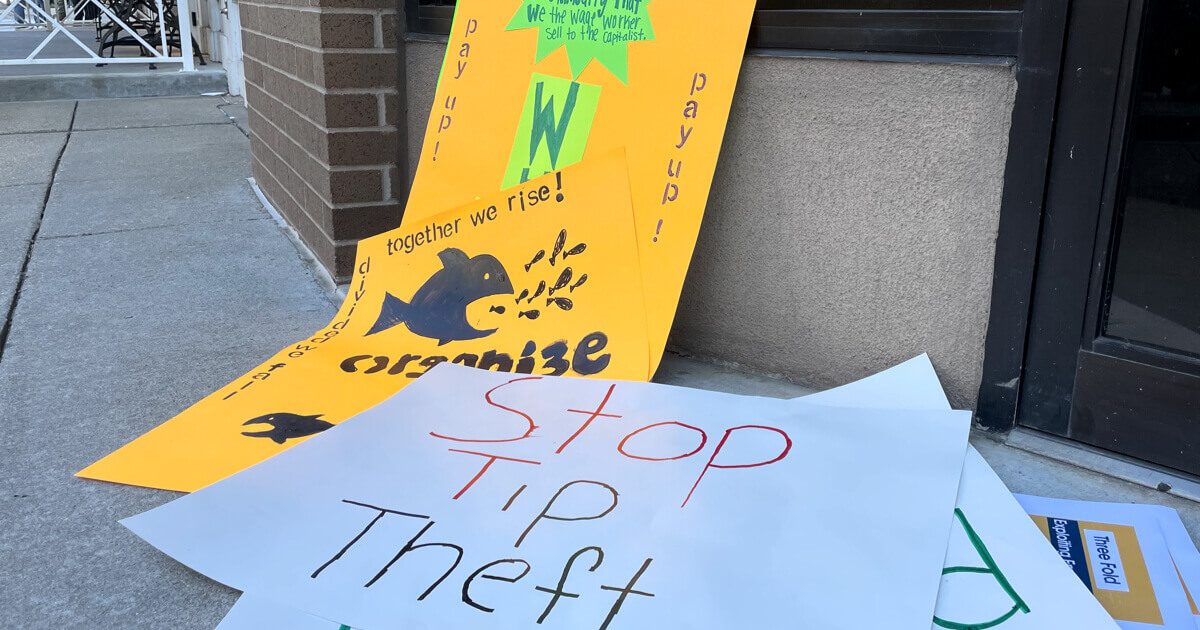 that
We the wage worker
sell to the capitalist.
pay up!
pay up!
W
together we rise!
divided we fall
organize
Stop
Tip
Theft
Three Fold
Exploiting